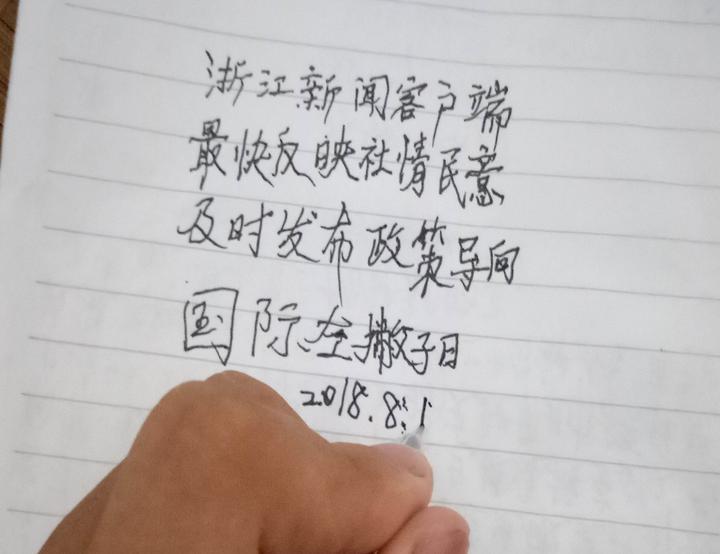 浙江新闻客户端
最快反映社情民意
及时发布政策导向
国际左撇子日
2018.8.1